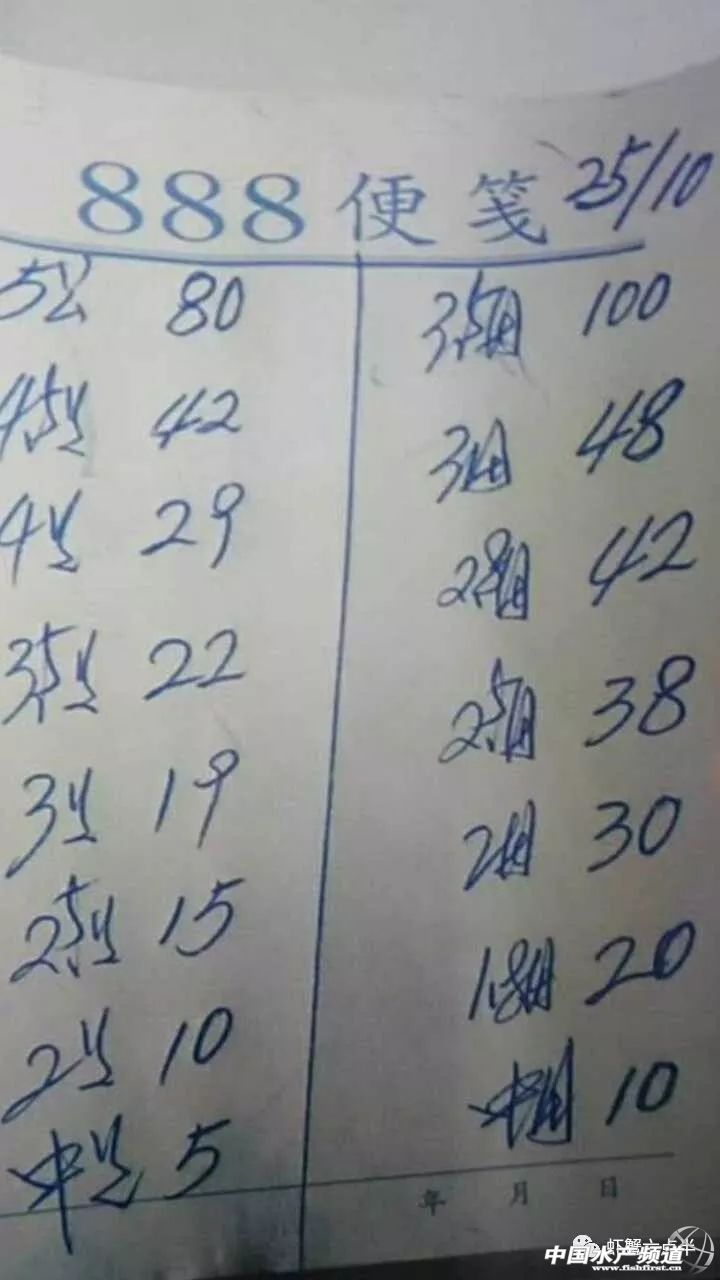 888便笺 25/10
5公 80 3.5母 100
4.5公 42 3母 48
4公 29 2.8母 42
3.5公 22 2.5母 38
3公 19 2母 30
2.5公 15 1.8母 20
2公 10 中母 10
中公 5
年 月 日
虾蟹六点半
中国水产频道
www.fishfirst.cn